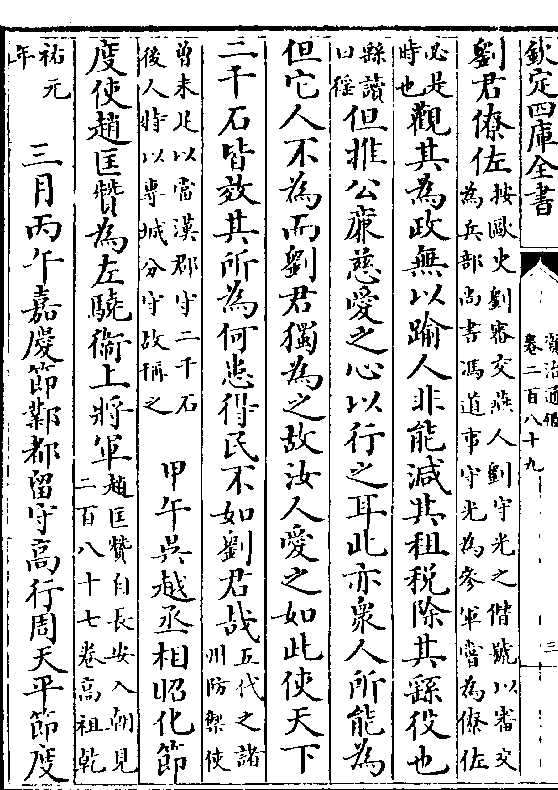 欽定四庫全書
資治通鑑
卷二百八十九
三
劉君僚佐
按歐史劉審交燕人劉守光之僭號以審交
為兵部尚書馮道事守光為參軍嘗為僚佐
必是
時也
觀其為政無以踰人非能減其租税除其繇役也
繇讀
曰徭
但推公廉慈愛之心以行之耳此亦衆人所能為
但它人不為而劉君獨為之故汝人愛之如此使天下
二千石皆效其所為何患得民不如劉君哉
五代之諸
州防禦使
曾未足以當漢郡守二千石
後人特以專城分守故稱之
甲午吳越丞相昭化節
度使趙匡贊為左驍衞上將軍
趙匡贊自長安入朝見
二百八十七卷高祖乾
祐元
年
三月丙午嘉慶節鄴都留守高行周天平節度